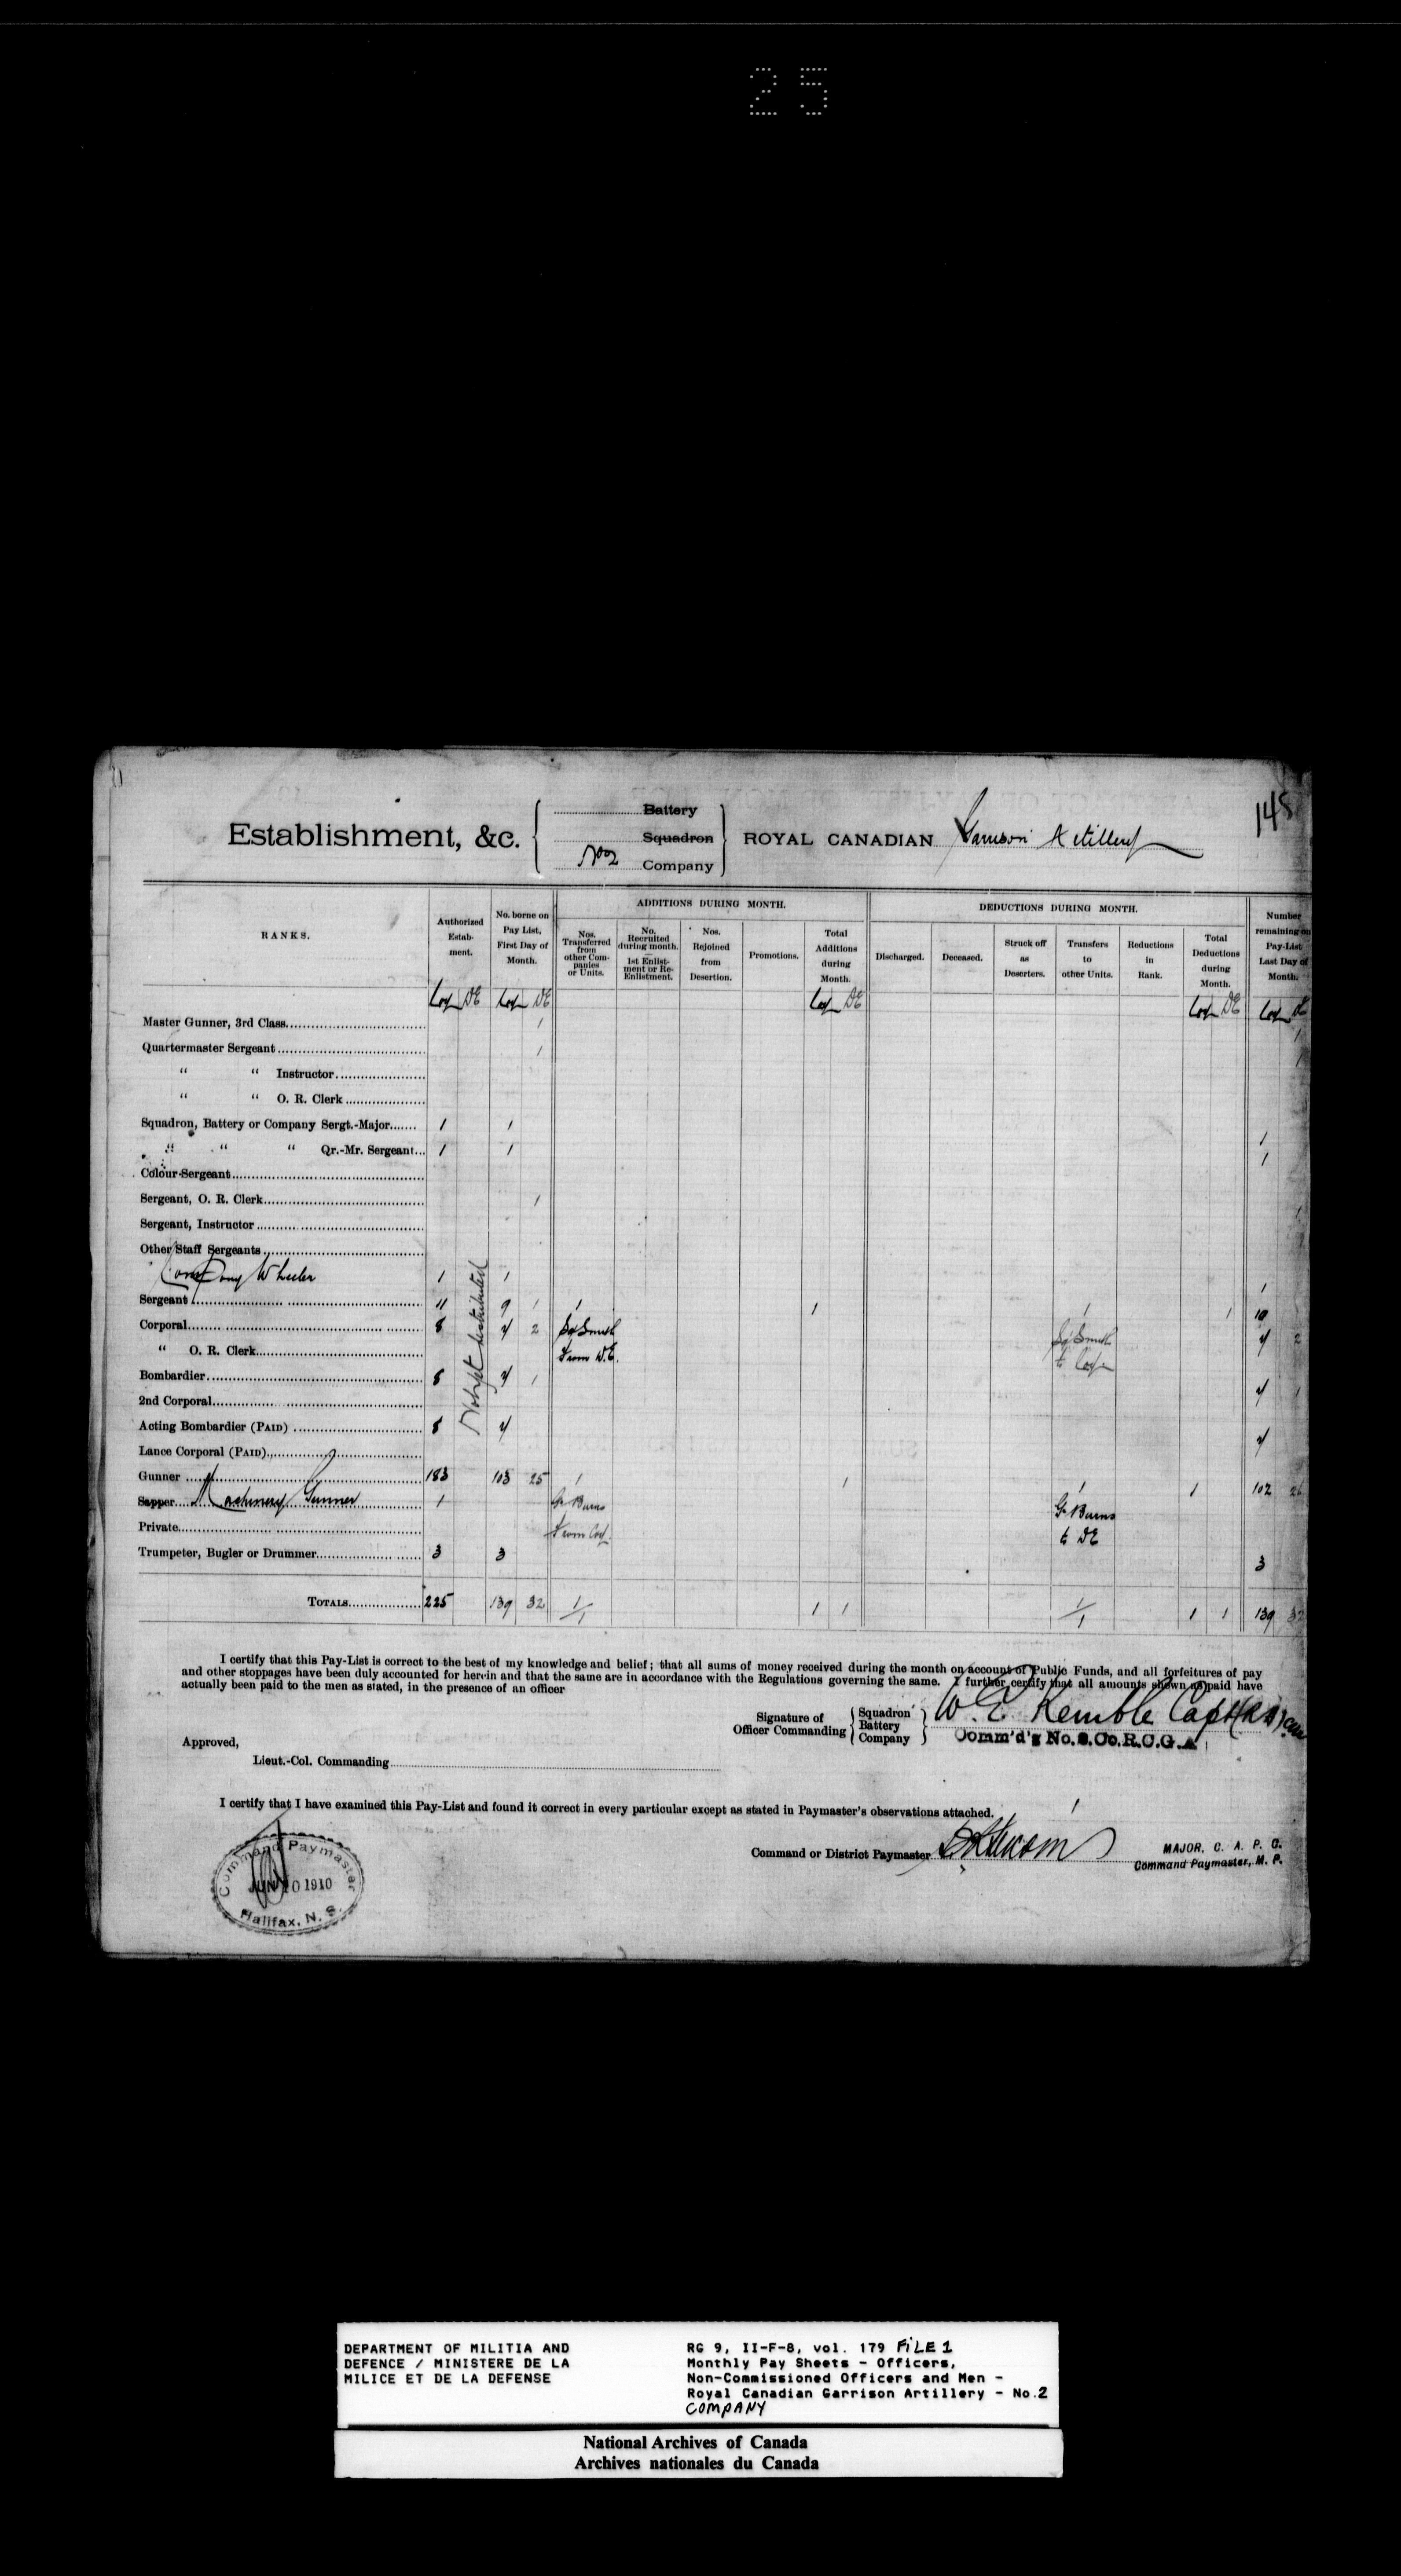 25
145
Establishment, &c.
Battery
Squadron
No 2 Company
ROYAL CANADIAN Garrison Artillery
RANKS.
Authorized Estab- ment.
No. borne on Pay List, First Day of Month.
ADDITIONS DURING MONTH.
Nos. Transferred from other Com- panies or Units.
No. Recruited during month. 1st Enlist- ment or Re- Enlistment.
Nos. Rejoined from Desertion.
Promotions.
Total Additions during Month.
DEDUCTIONS DURING MONTH.
Discharged.
Deceased.
Struck off as Deserters.
Transfers to other Units.
Reductions in Rank.
Total Deductions during Month.
Number remaining on Pay-List Last Day of Month.
Coy DE Coy DE Coy DE Coy DE Coy DE
Master Gunner, 3rd Class 1 1
Quartermaster Sergeant 1 1
" " Instructor
" " O. R. Clerk
Squadron, Battery or Company Sergt.-Major 1 1 1
" " " Qr.-Mr. Sergeant 1 1 1
Colour-Sergeant
Sergeant, O. R. Clerk 1 1
Sergeant, Instructor
Other Staff Sergeants
Company Wheeler 1 1 1
Not yet distributed
Sergeant 11 9 1 1 1 1 1 10
Corporal 8 4 2 Sgt Smith Sgt Smith 4 2
" O. R. Clerk From D.E. to Coy
Bombardier 8 4 1 4 1
2nd Corporal
Acting Bombardier (PAID) 8 4 4
Lance Corporal (PAID)
Gunner 183 103 25 1 1 1 1 102 26
Sapper Machinery Gunner 1 Gr Burns Gr Burns
Private From Coy. to DE
Trumpeter, Bugler or Drummer 3 3 3
TOTALS 225 139 32 1/1 1 1 1/1 1 1 139 32
I certify that this Pay-List is correct to the best of my knowledge and belief; that all sums of money received during the month on account of Public Funds, and all forfeitures of pay
and other stoppages have been duly accounted for herein and that the same are in accordance with the Regulations governing the same. I further certify that all amounts shown as paid have
actually been paid to the men as stated, in the presence of an officer
Signature of Officer Commanding
Squadron
Battery
Company
W. E. Kemble Capt (RA)
Comm'd'g No. 2. Co. R.C.G.A.
Approved,
Lieut.-Col. Commanding
I certify that I have examined this Pay-List and found it correct in every particular except as stated in Paymaster's observations attached.
Command or District Paymaster
MAJOR, C. A. P. C.
Command Paymaster, M. P.
Command Paymaster
JUN 10 1910
Halifax, N. S.
DEPARTMENT OF MILITIA AND
DEFENCE / MINISTERE DE LA
MILICE ET DE LA DEFENSE
RG 9, II-F-8, vol. 179 FILE 1
Monthly Pay Sheets - Officers,
Non-Commissioned Officers and Men -
Royal Canadian Garrison Artillery - No.2
COMPANY
National Archives of Canada
Archives nationales du Canada